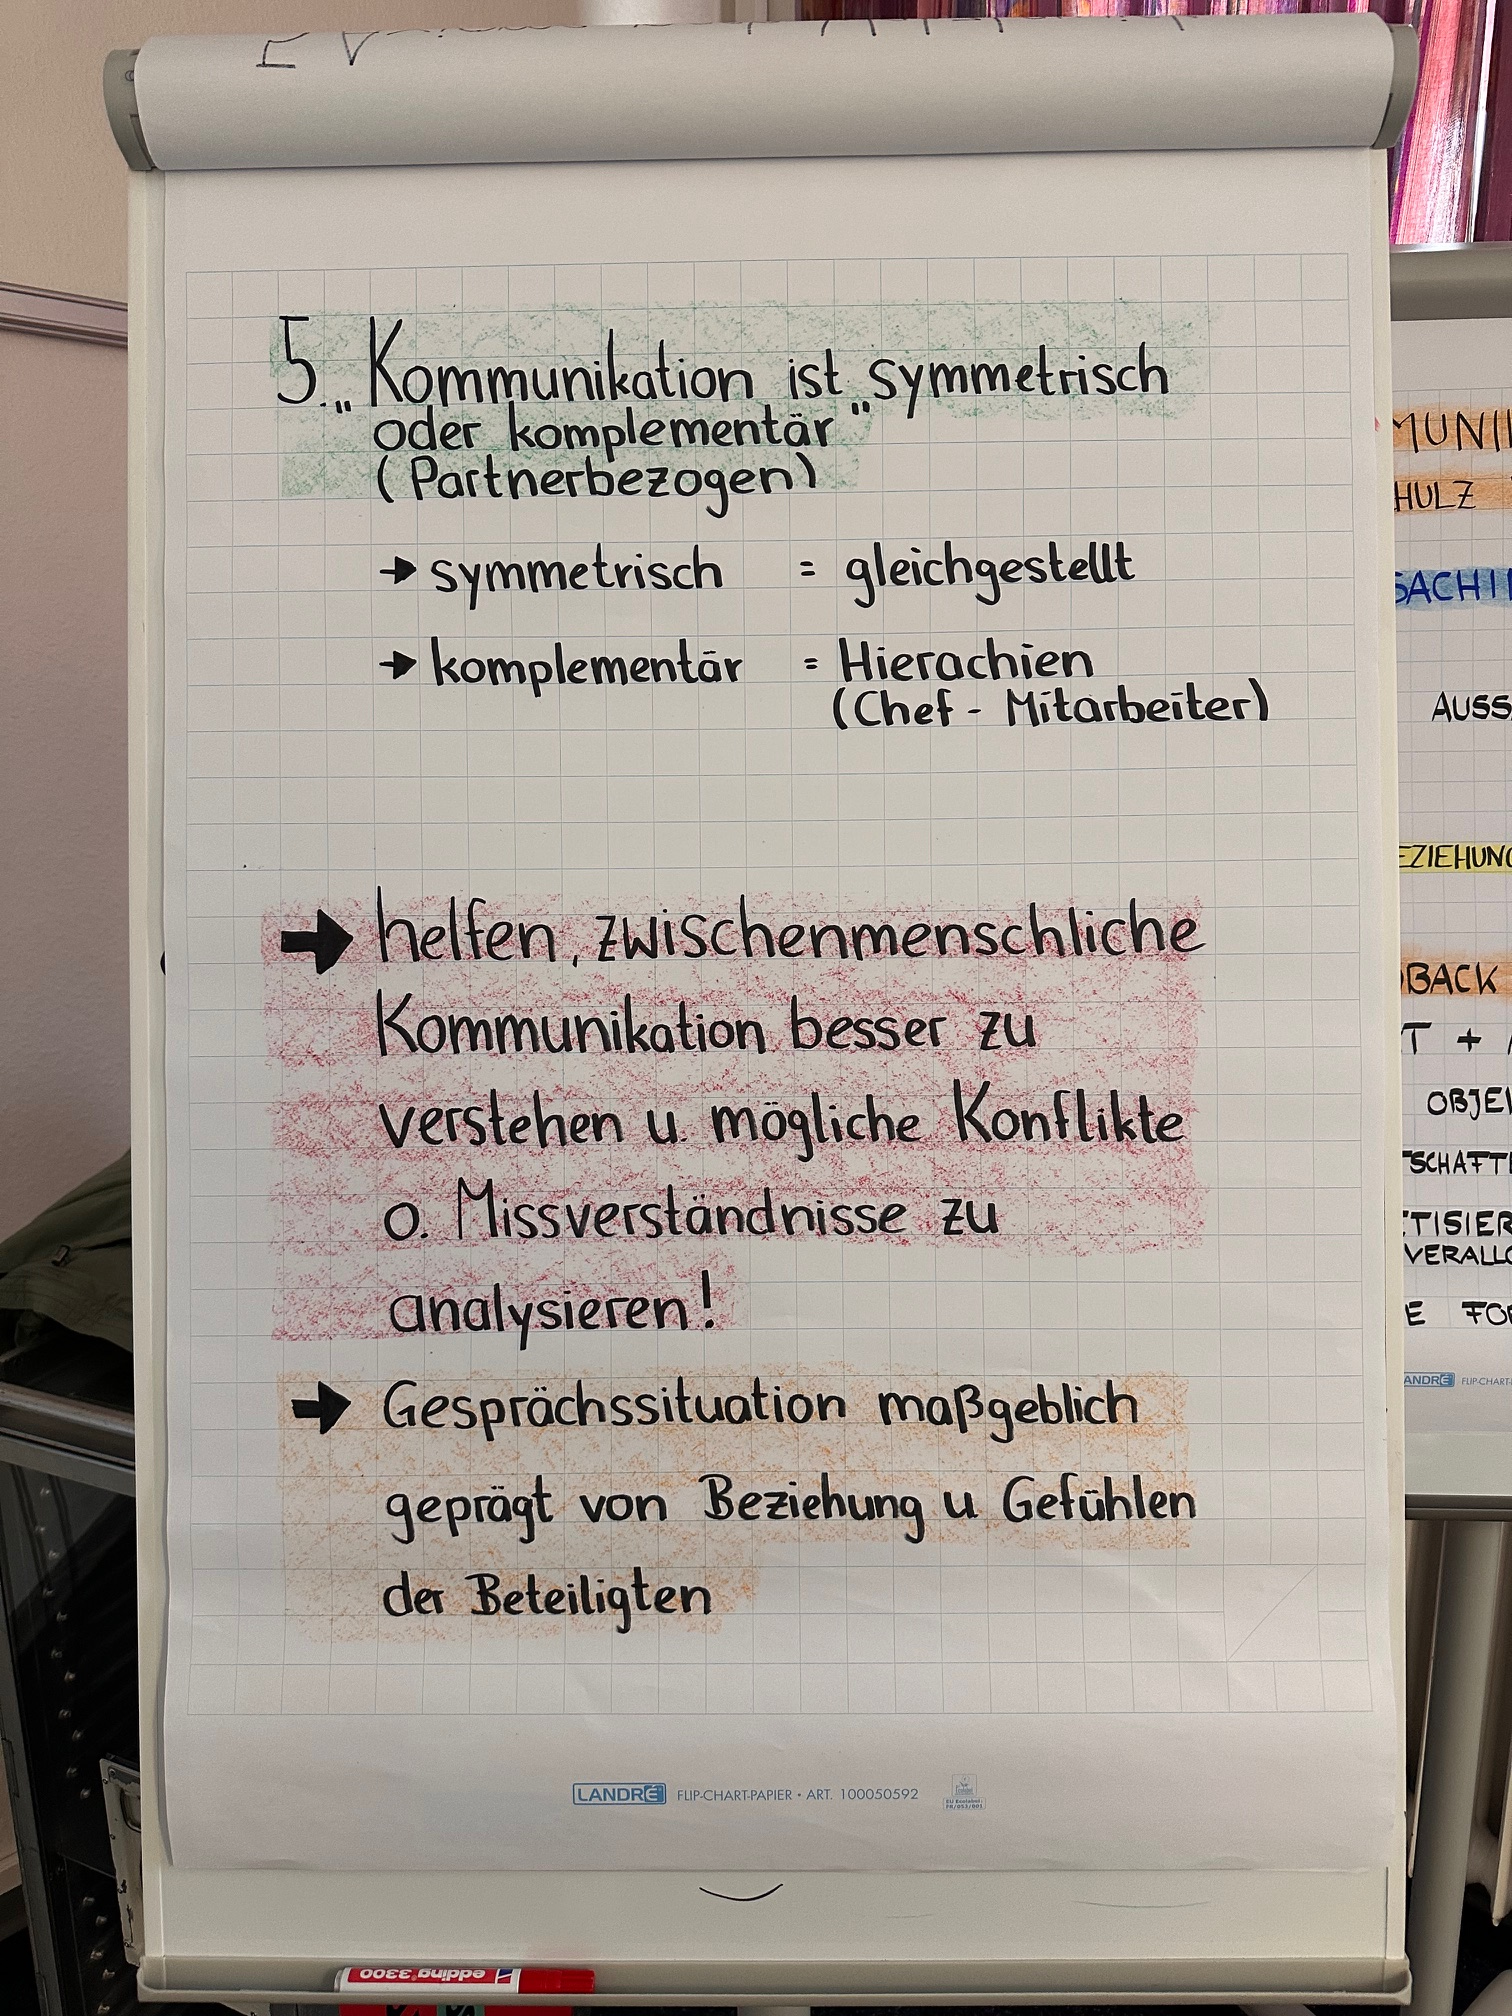 5. „Kommunikation ist symmetrisch
oder komplementär"
(Partnerbezogen)
→ symmetrisch = gleichgestellt
→ komplementär = Hierachien
(Chef - Mitarbeiter)
➡ helfen, zwischenmenschliche
Kommunikation besser zu
verstehen u. mögliche Konflikte
o. Missverständnisse zu
analysieren!
➡ Gesprächssituation maßgeblich
geprägt von Beziehung u Gefühlen
der Beteiligten
LANDRÉ FLIP-CHART-PAPIER • ART. 100050592
edding 3300
MUNI
HULZ
SACHI
AUSS
EZIEHUNG
BACK
T +
OBJE
TSCHAFT
TISIER
VERALLG
E FO
ANDRÉ FLIP-CHART-